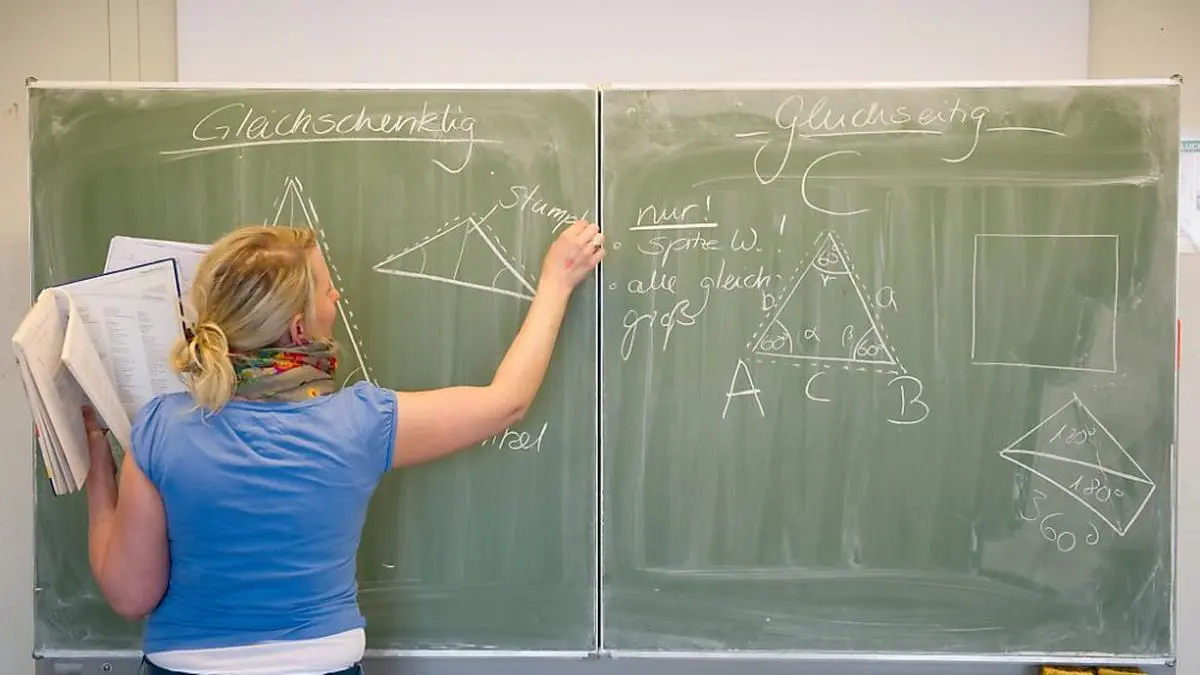 Gleichschenklig
stumpf
Gleichseitig
nur!
spitze W. !
alle gleich
groß
C
60°
γ
b
a
60°
α
β
60°
A
c
B
180°
180°
360°